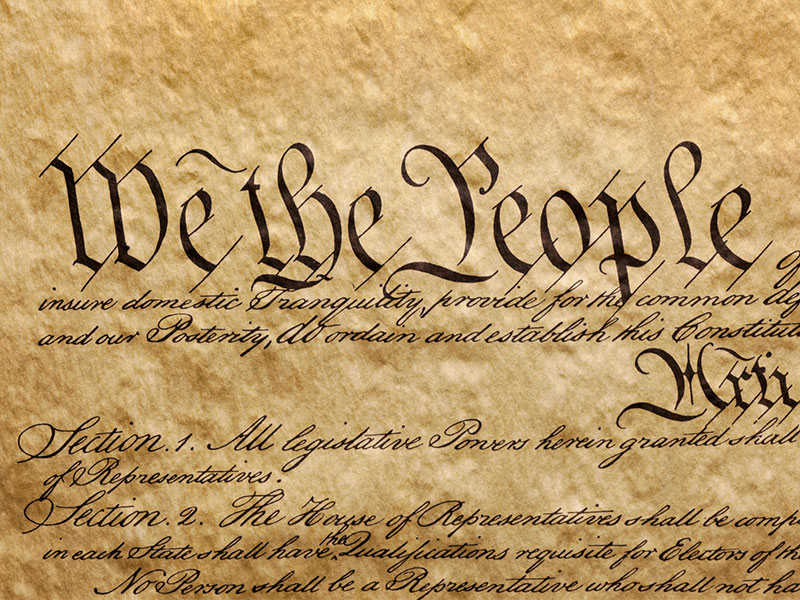 We the People
insure domestic Tranquility, provide for the common def
and our Posterity, do ordain and establish this Constitut
Arti
Section. 1. All legislative Powers herein granted shall
of Representatives.
Section. 2. The House of Representatives shall be comp
in each State shall have the Qualifications requisite for Electors of th
No Person shall be a Representative who shall not ha